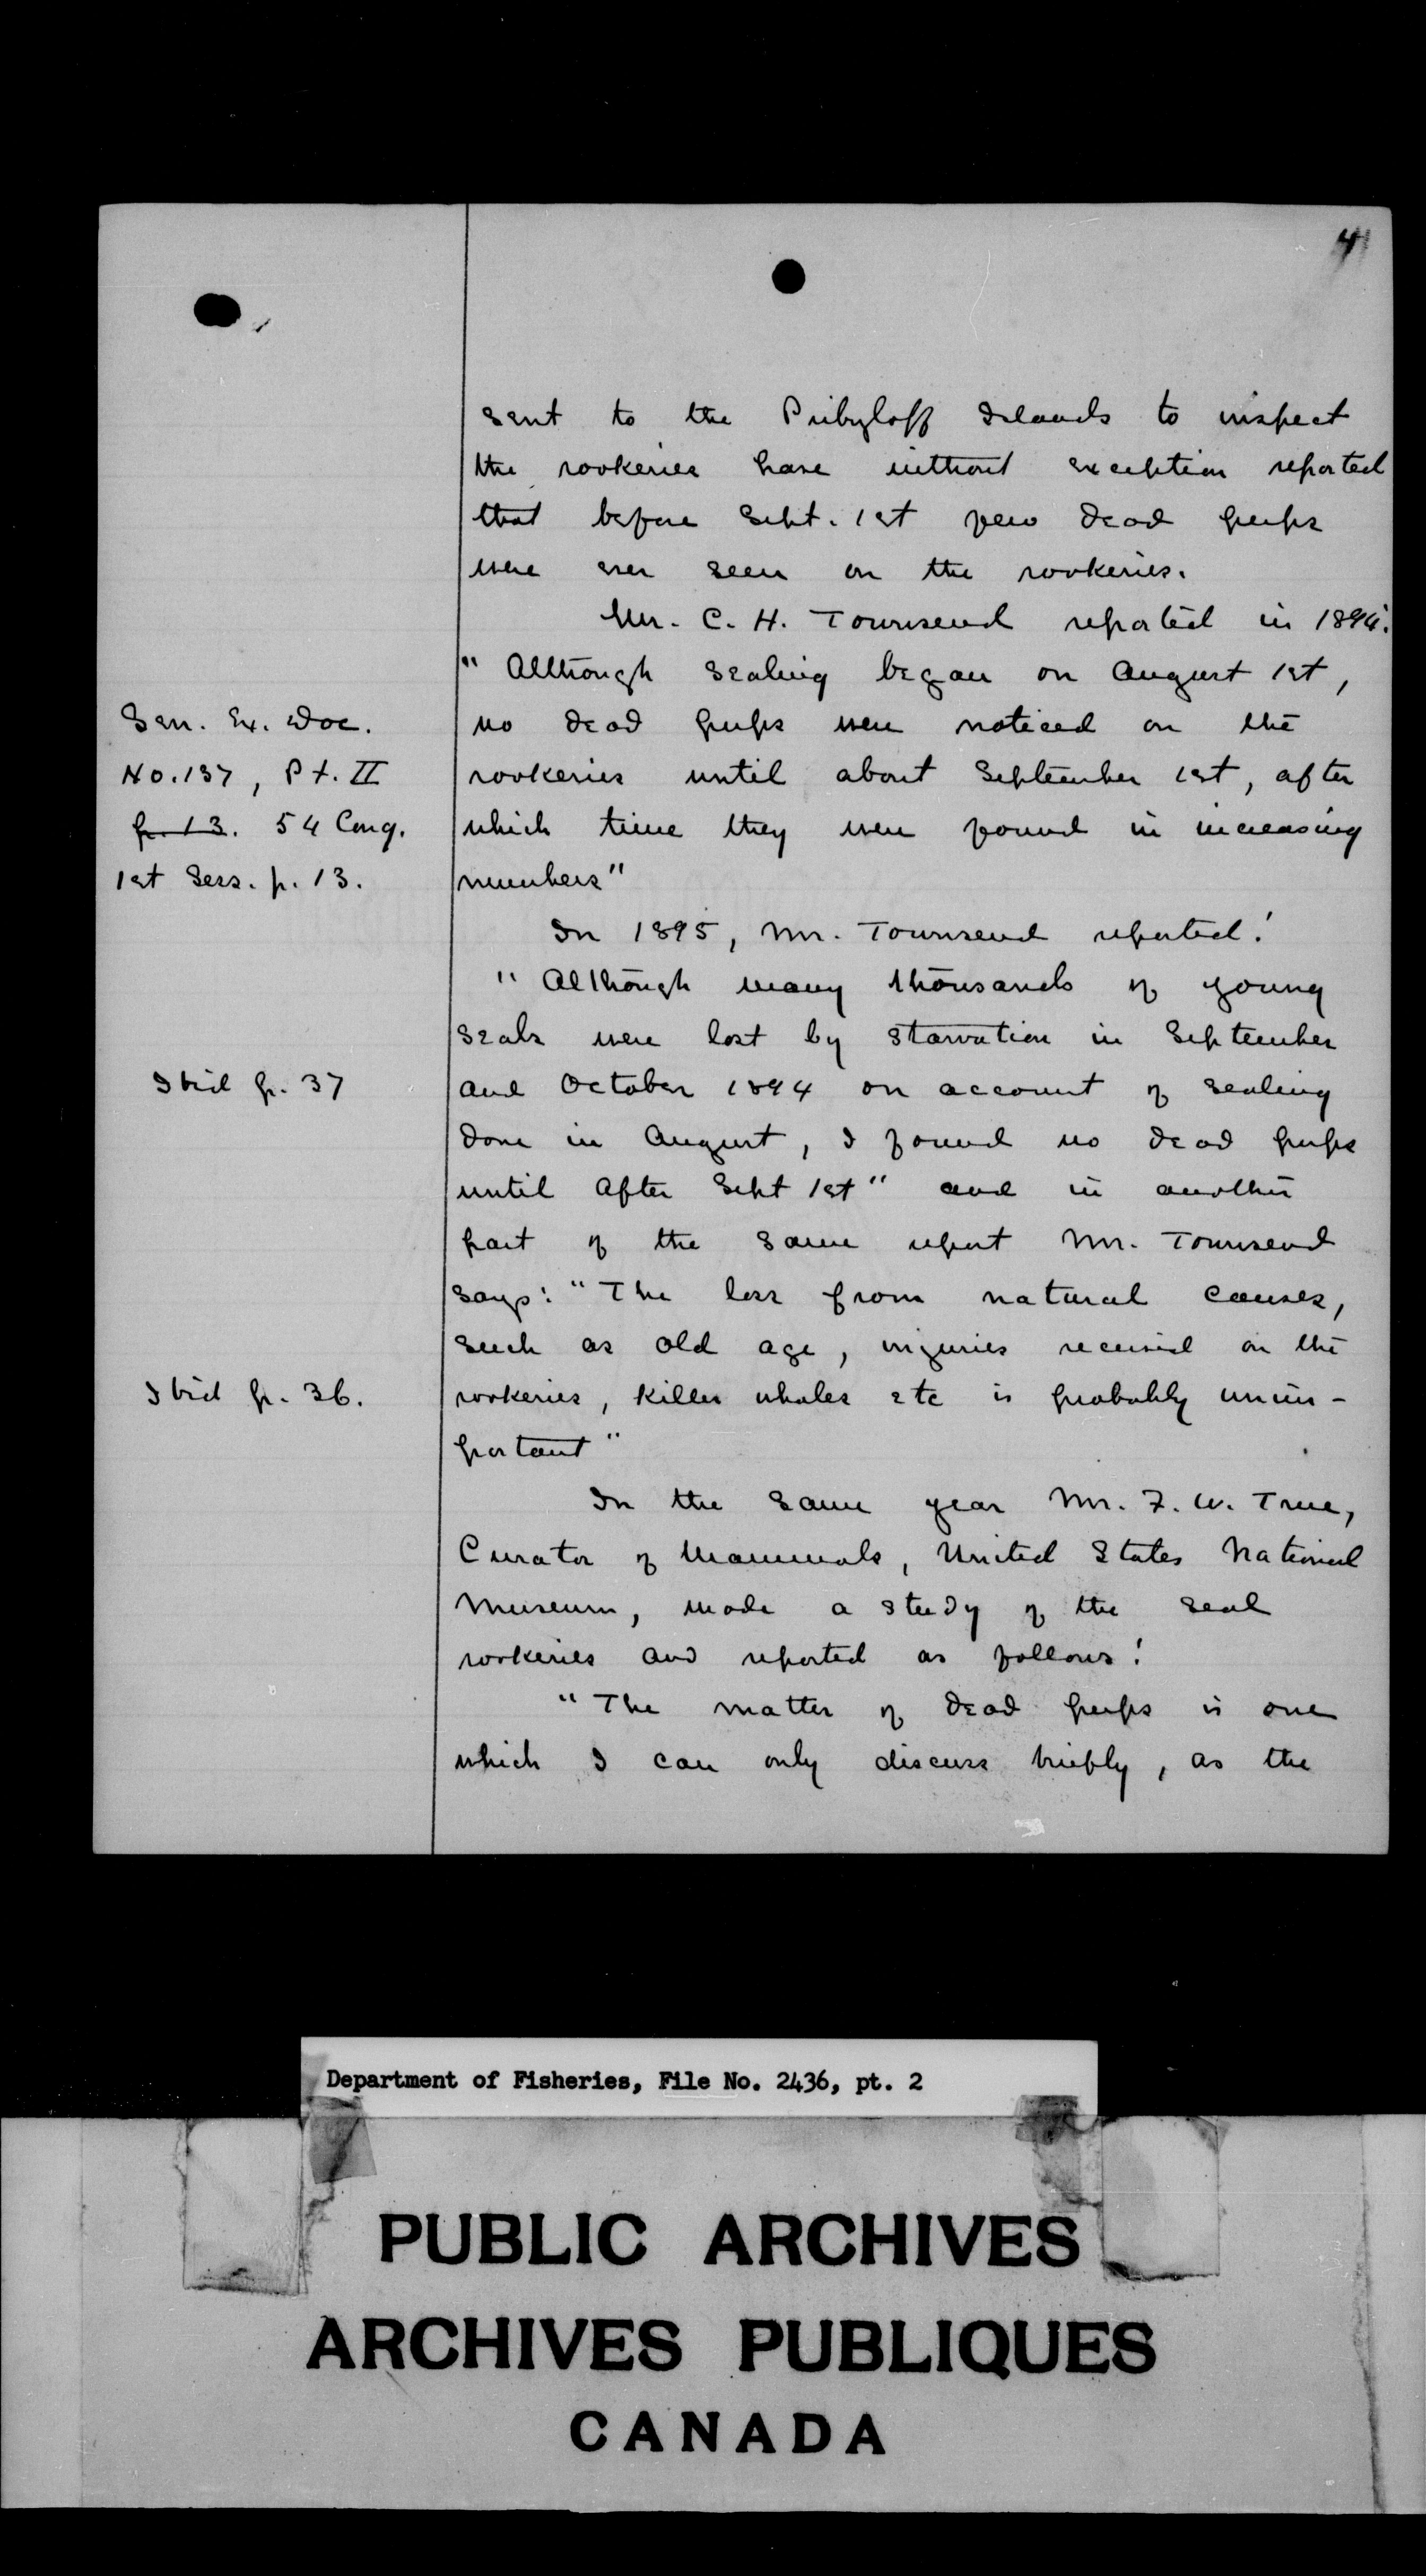 4
sent to the Pribyloff Islands to inspect
the rookeries have without exception reported
that before Sept. 1st few dead pups
were ever seen on the rookeries.
Mr. C. H. Townsend reported in 1894:
"Although sealing began on August 1st,
no dead pups were noticed on the
rookeries until about September 1st, after
which time they were found in increasing
numbers"
Sen. Ex. Doc.
No. 137, Pt. II
p. 13. 54 Cong.
1st Sess. p. 13.
In 1895, Mr. Townsend reported:
"Although many thousands of young
seals were lost by starvation in September
and October 1894 on account of sealing
done in August, I found no dead pups
until after Sept 1st" and in another
part of the same report Mr. Townsend
says: "The loss from natural causes,
such as old age, injuries received on the
rookeries, killer whales etc is probably unim-
portant"
Ibid p. 37
Ibid p. 36.
In the same year Mr. F. W. True,
Curator of Mammals, United States National
Museum, made a study of the seal
rookeries and reported as follows:
"The matter of dead pups is one
which I can only discuss briefly, as the
Department of Fisheries, File No. 2436, pt. 2
PUBLIC ARCHIVES
ARCHIVES PUBLIQUES
CANADA